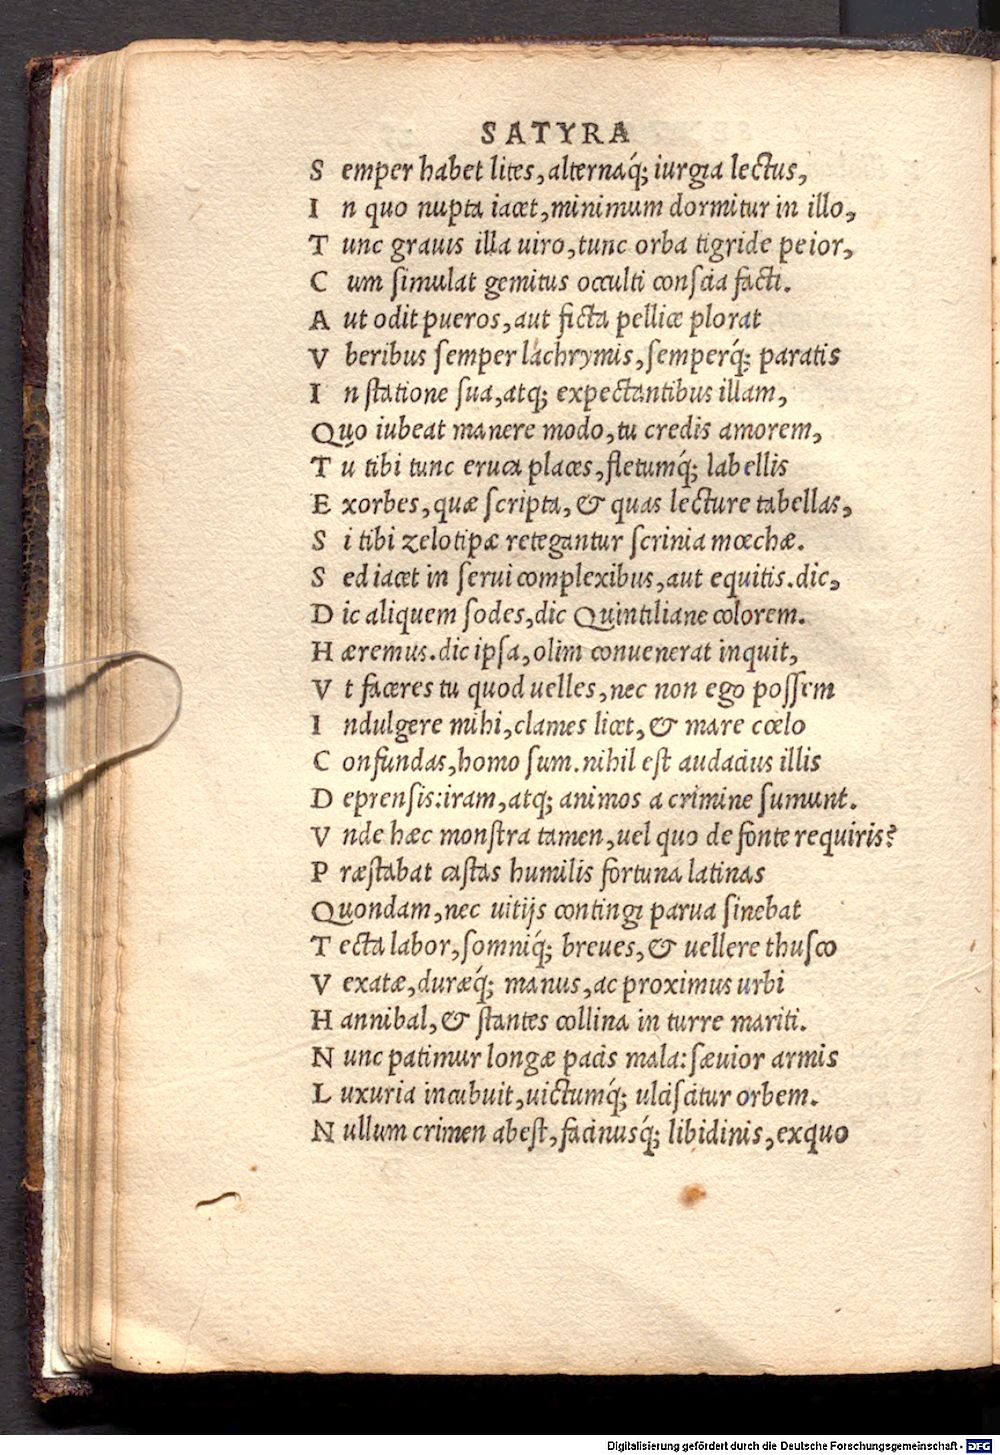 SATYRA
S emper habet lites, alternaq́; iurgia lectus,
I n quo nupta iacet, minimum dormitur in illo,
T unc grauis illa uiro, tunc orba tigride peior,
C um ſimulat gemitus occulti conſcia facti.
A ut odit pueros, aut ficta pellice plorat
V beribus ſemper lachrymis, ſemperq́; paratis
I n ſtatione ſua, atq; expectantibus illam,
Quo iubeat manere modo, tu credis amorem,
T u tibi tunc eruca places, fletumq́; labellis
E xorbes, quæ ſcripta, & quas lecture tabellas,
S i tibi zelotipæ retegantur ſcrinia mœchæ.
S ed iacet in ſerui complexibus, aut equitis. dic,
D ic aliquem ſodes, dic Quintiliane colorem.
H æremus. dic ipſa, olim conuenerat inquit,
V t faceres tu quod uelles, nec non ego poſſem
I ndulgere mihi, clames licet, & mare cœlo
C onfundas, homo ſum. nihil eſt audacius illis
D eprenſis: iram, atq; animos a crimine ſumunt.
V nde hæc monſtra tamen, uel quo de fonte requiris?
P ræſtabat caſtas humilis fortuna latinas
Quondam, nec uitijs contingi parua ſinebat
T ecta labor, ſomniq́; breues, & uellere thuſco
V exatæ, duræq́; manus, ac proximus urbi
H annibal, & ſtantes collina in turre mariti.
N unc patimur longæ pacis mala: ſæuior armis
L uxuria incubuit, uictumq́; ulciſcitur orbem.
N ullum crimen abeſt, facinusq́; libidinis, exquo
Digitalisierung gefördert durch die Deutsche Forschungsgemeinschaft - DFG